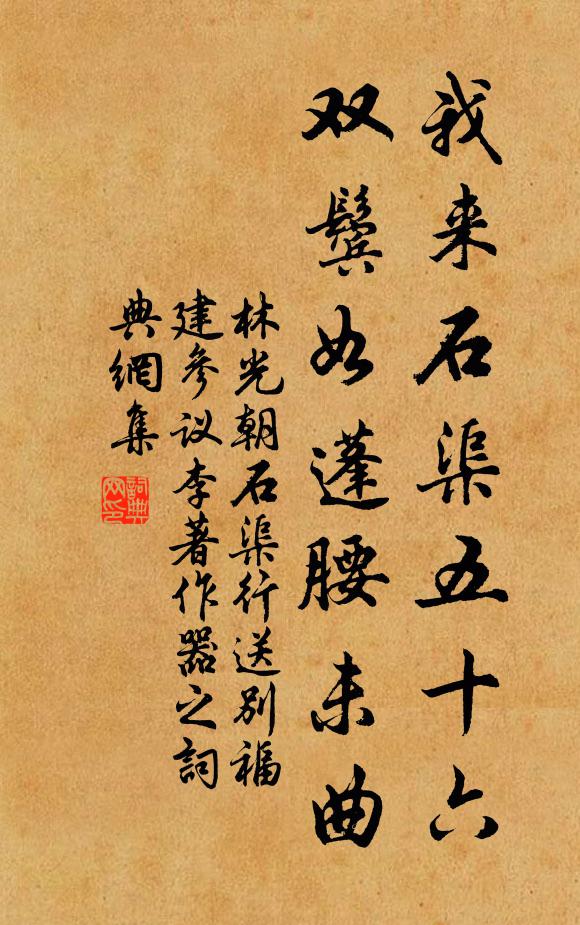 我来石渠五十六
双鬓如蓬腰未曲
林光朝石渠行送别福
建参议李著作器之詞
典網集
詞典网印